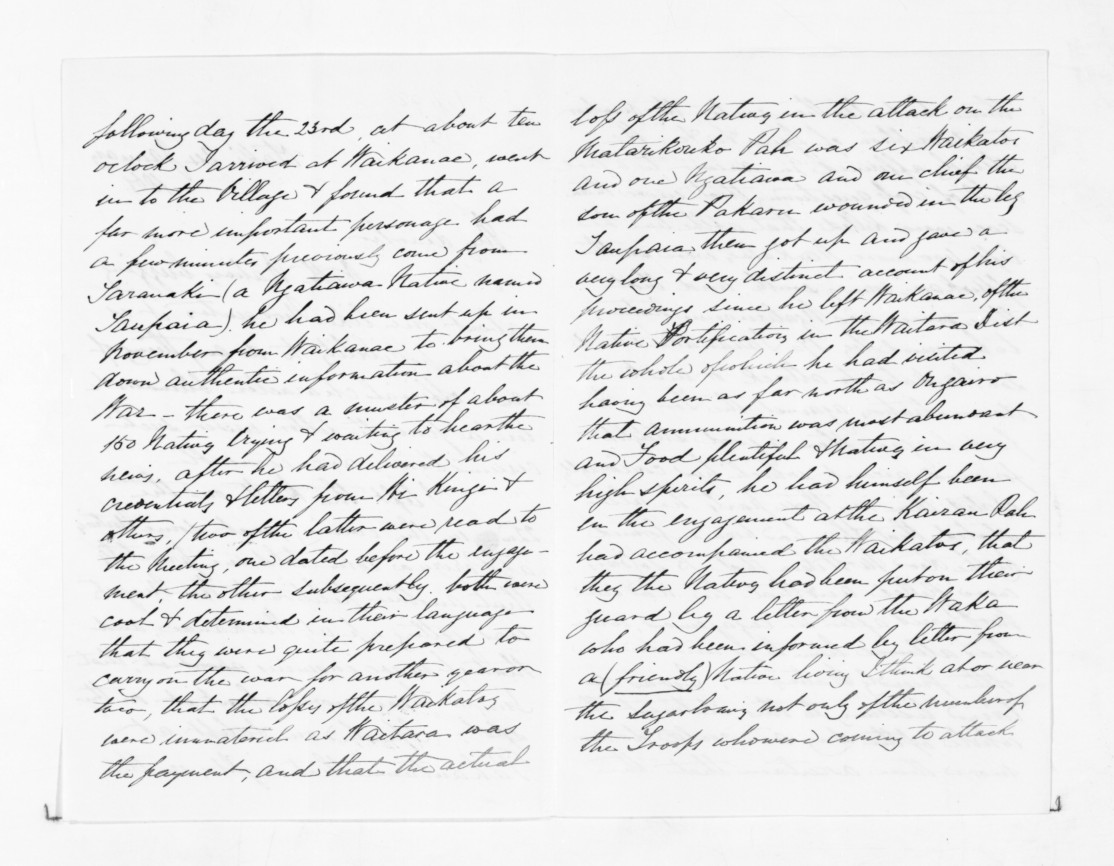 following day the 23rd, at about ten
oclock I arrived at Waikanae, went
in to the Village & found that a
far more important personage had
a few minutes previously come from
Taranaki (a Ngatiawa Native named
Taupaia). he had been sent up in
November from Waikanae to bring them
down authentic information about the
War – there was a muster of about
150 Natives crying & waiting to hear the
news, after he had delivered his
credentials & letters from Wi Kingi &
others, (two of the latter were read to
the Meeting, one dated before the engage-
ment the other subsequently. both were
cool & determined in their language
that they were quite prepared to
carry on the war for another year or
two, that the losses of the Waikatos
were immaterial as Waitara was
the payment, and that the actual
loss of the Natives in the attack on the
Matarikoriko Pah was six Waikatos
and one Ngatiawa and one chief the
son of the Pakaru wounded in the leg
Taupaia then got up and gave a
very long & very distinct account of his
proceedings since he left Waikanae, of the
Native Fortifications in the Waitara Dist
the whole of which he had visited
having been as far north as Ongairo
that ammunition was most abundant
and Food plentiful & Natives in very
high spirits, he had himself been
in the engagement at the Kairau Pah
had accompanied the Waikatos, that
they the Natives had been put on their
guard by a letter from the Waka
who had been informed by letter from
a (friendly) Native living I think at or near
the Sugarloaves not only of the number of
the Troops who were coming to attack